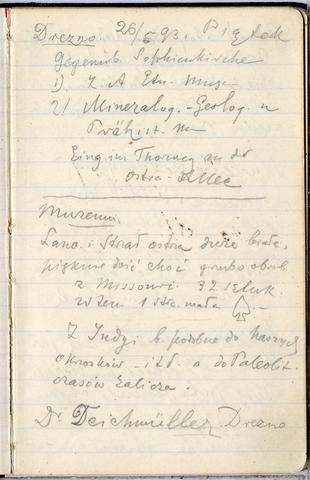 Drezno 26/5 93. Piątek
Gegenüb. Sophienkirche
1) Z A Etn. Mus
2) Mineralog.-Geolog. u
Prähist. M
Eing. im Thorweg an der
Ostra-Allee
Muzeum.
Lanc. i Strzał ostrza duże białe,
pięknie dość choć grubo obrob.
z Missouri 32 sztuk.
w tem 1 strz. mała
Z Indyj b. podobne do naszych
okrosków - itd. a do Paleolit.
czasów zalicza.
Dr Deichmüller Drezno